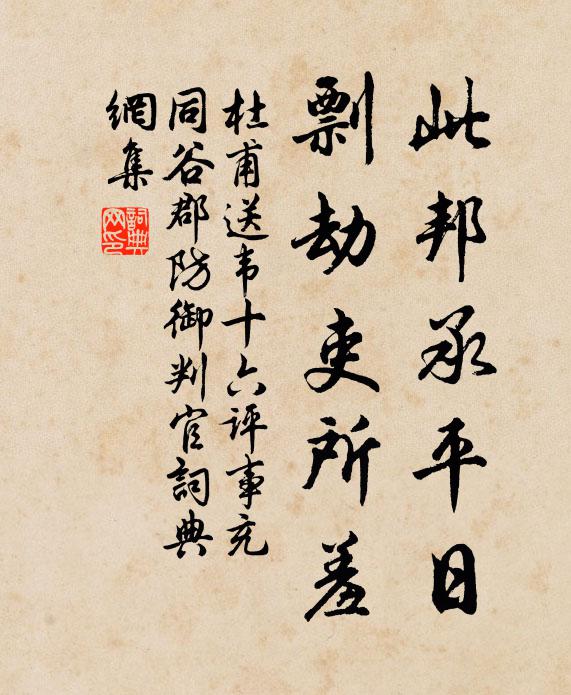 此邦承平日
剽劫吏所羞
杜甫送韦十六评事充
同谷郡防御判官詞典
網集
詞典
网印